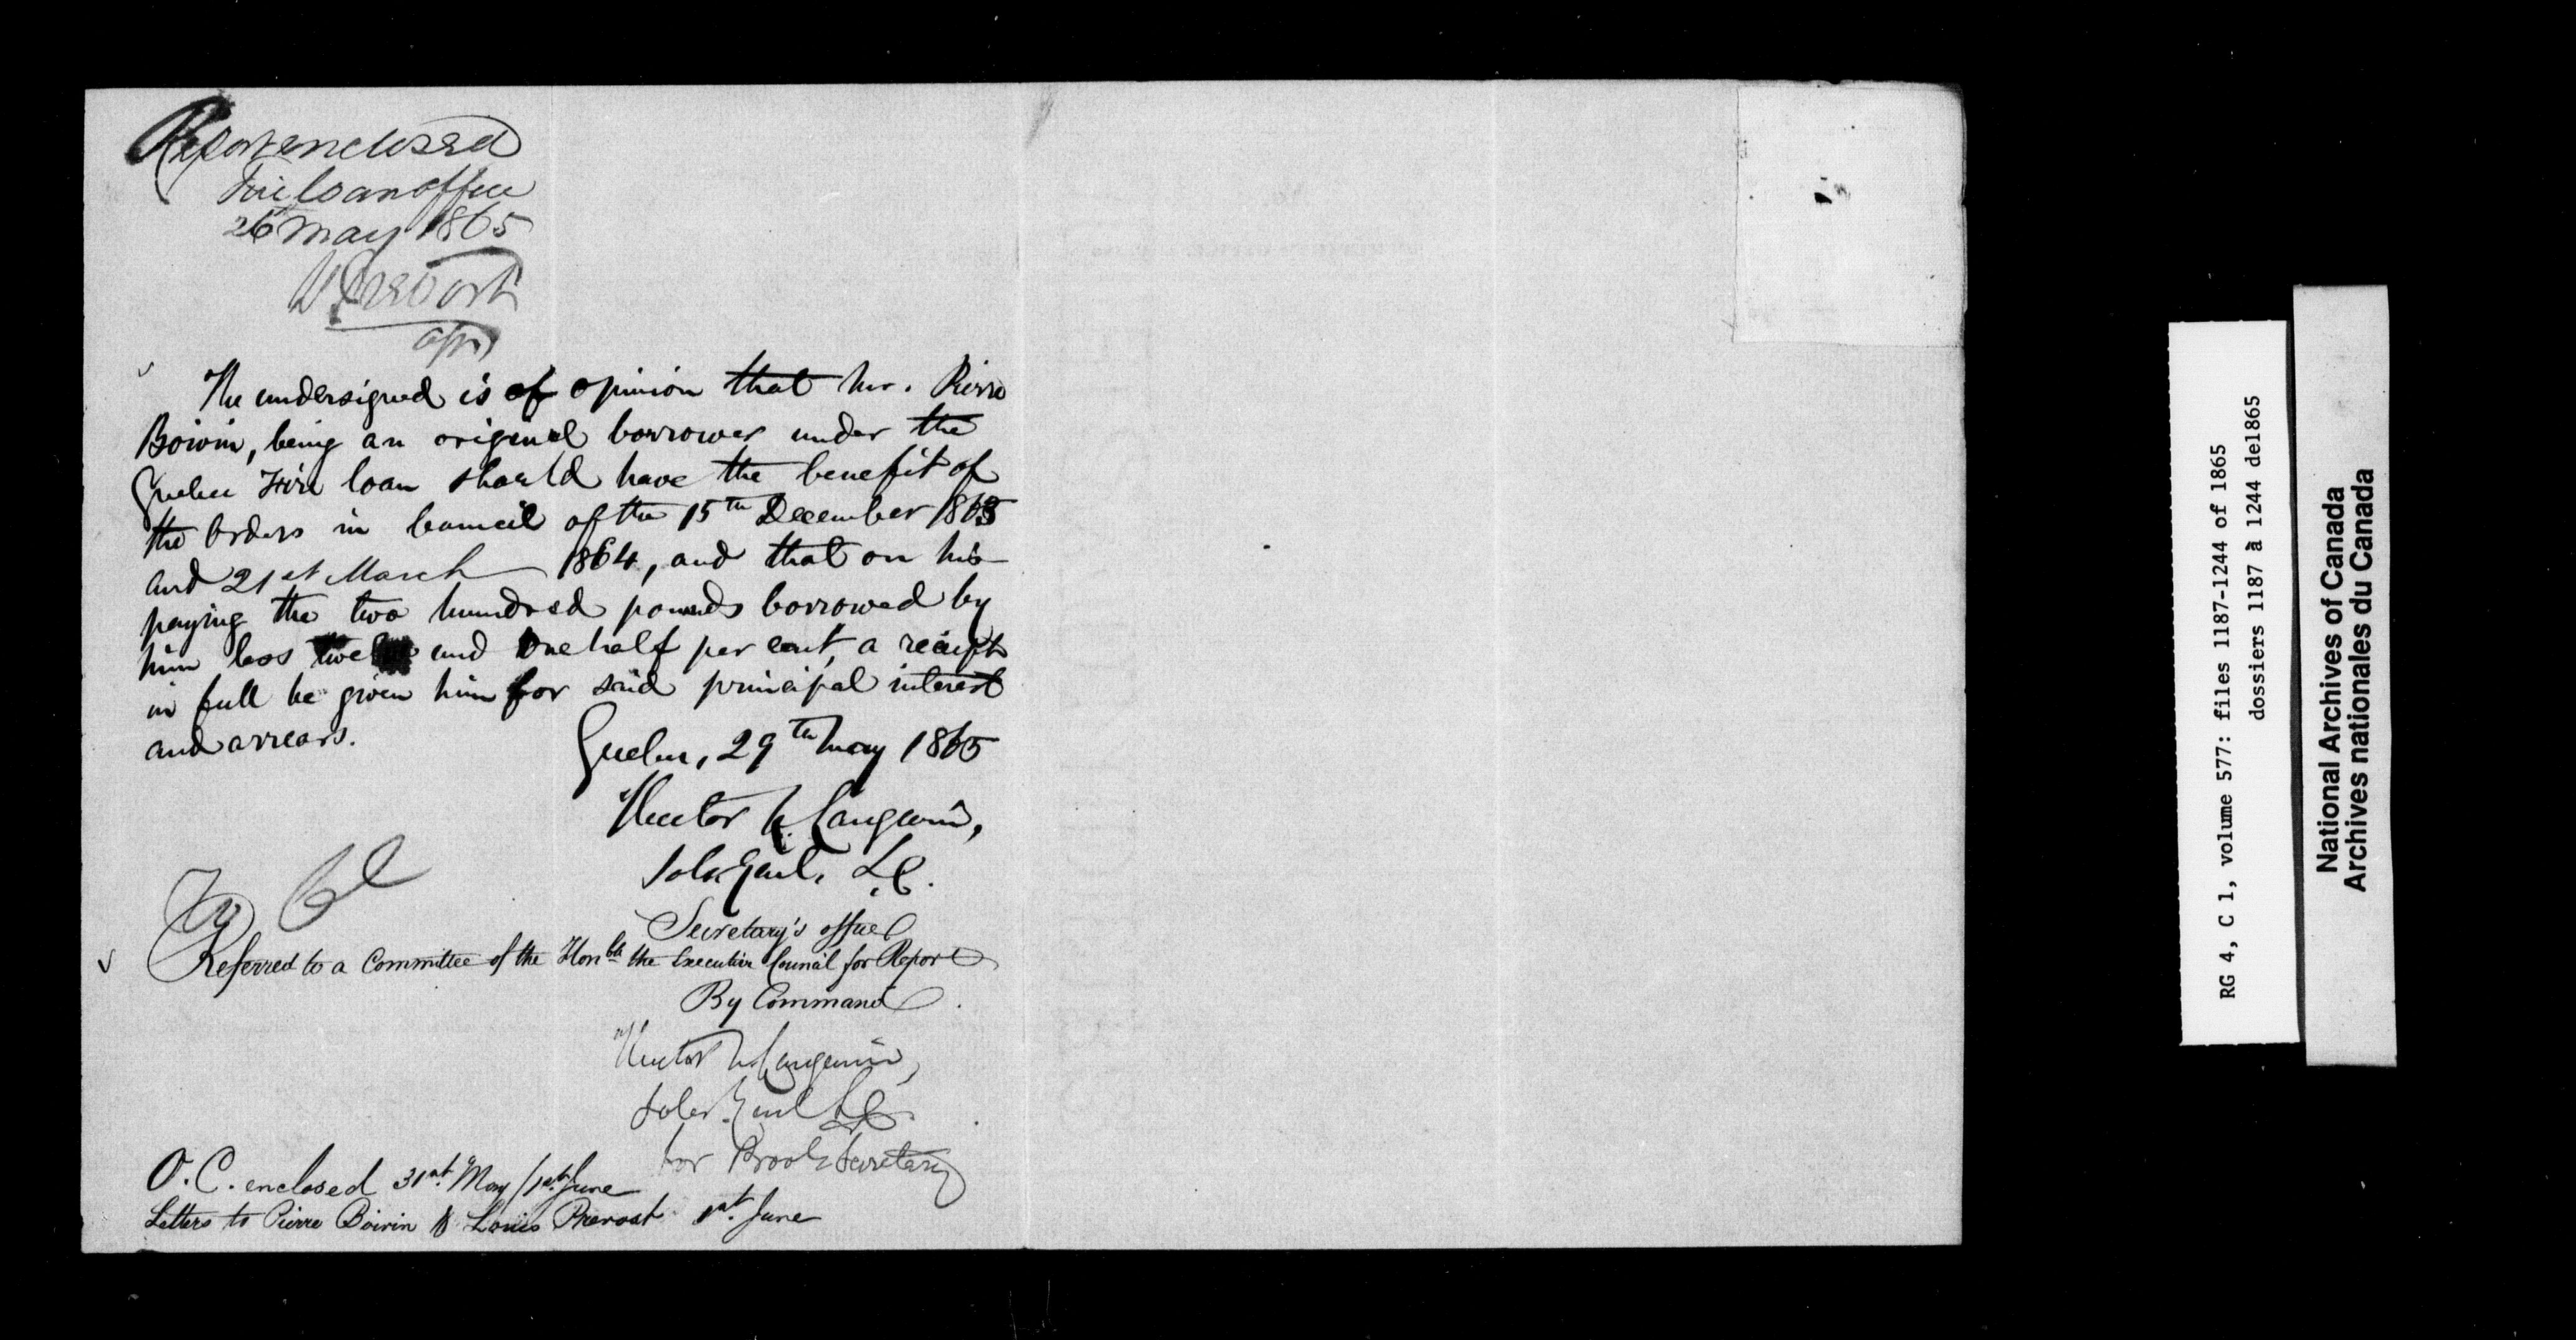 Report enclosed
Fire loan office
26 May 1865
L Prevost
The undersigned is of opinion that Mr. Pierre
Boivin, being an original borrower under the
Quebec Fire loan should have the benefit of
the Orders in Council of the 15th December 1863
and 21st March 1864, and that on his
paying the two hundred pounds borrowed by
him less twelve and one half per cent, a receipt
in full be given him for said principal interest
and arrears.
Quebec, 29th May 1865
Hector L. Langevin,
Solr. Genl. L.C.
Secretary's office
Referred to a Committee of the Honble the Executive Council for Report
By Command
Hector L. Langevin,
Solr. Genl L.C.
for Provl Secretary
O.C. enclosed 31st May / 1st June
Letters to Pierre Boivin & Louis Prevost 1st June
RG 4, C 1, volume 577: files 1187-1244 of 1865
dossiers 1187 à 1244 de1865
National Archives of Canada
Archives nationales du Canada